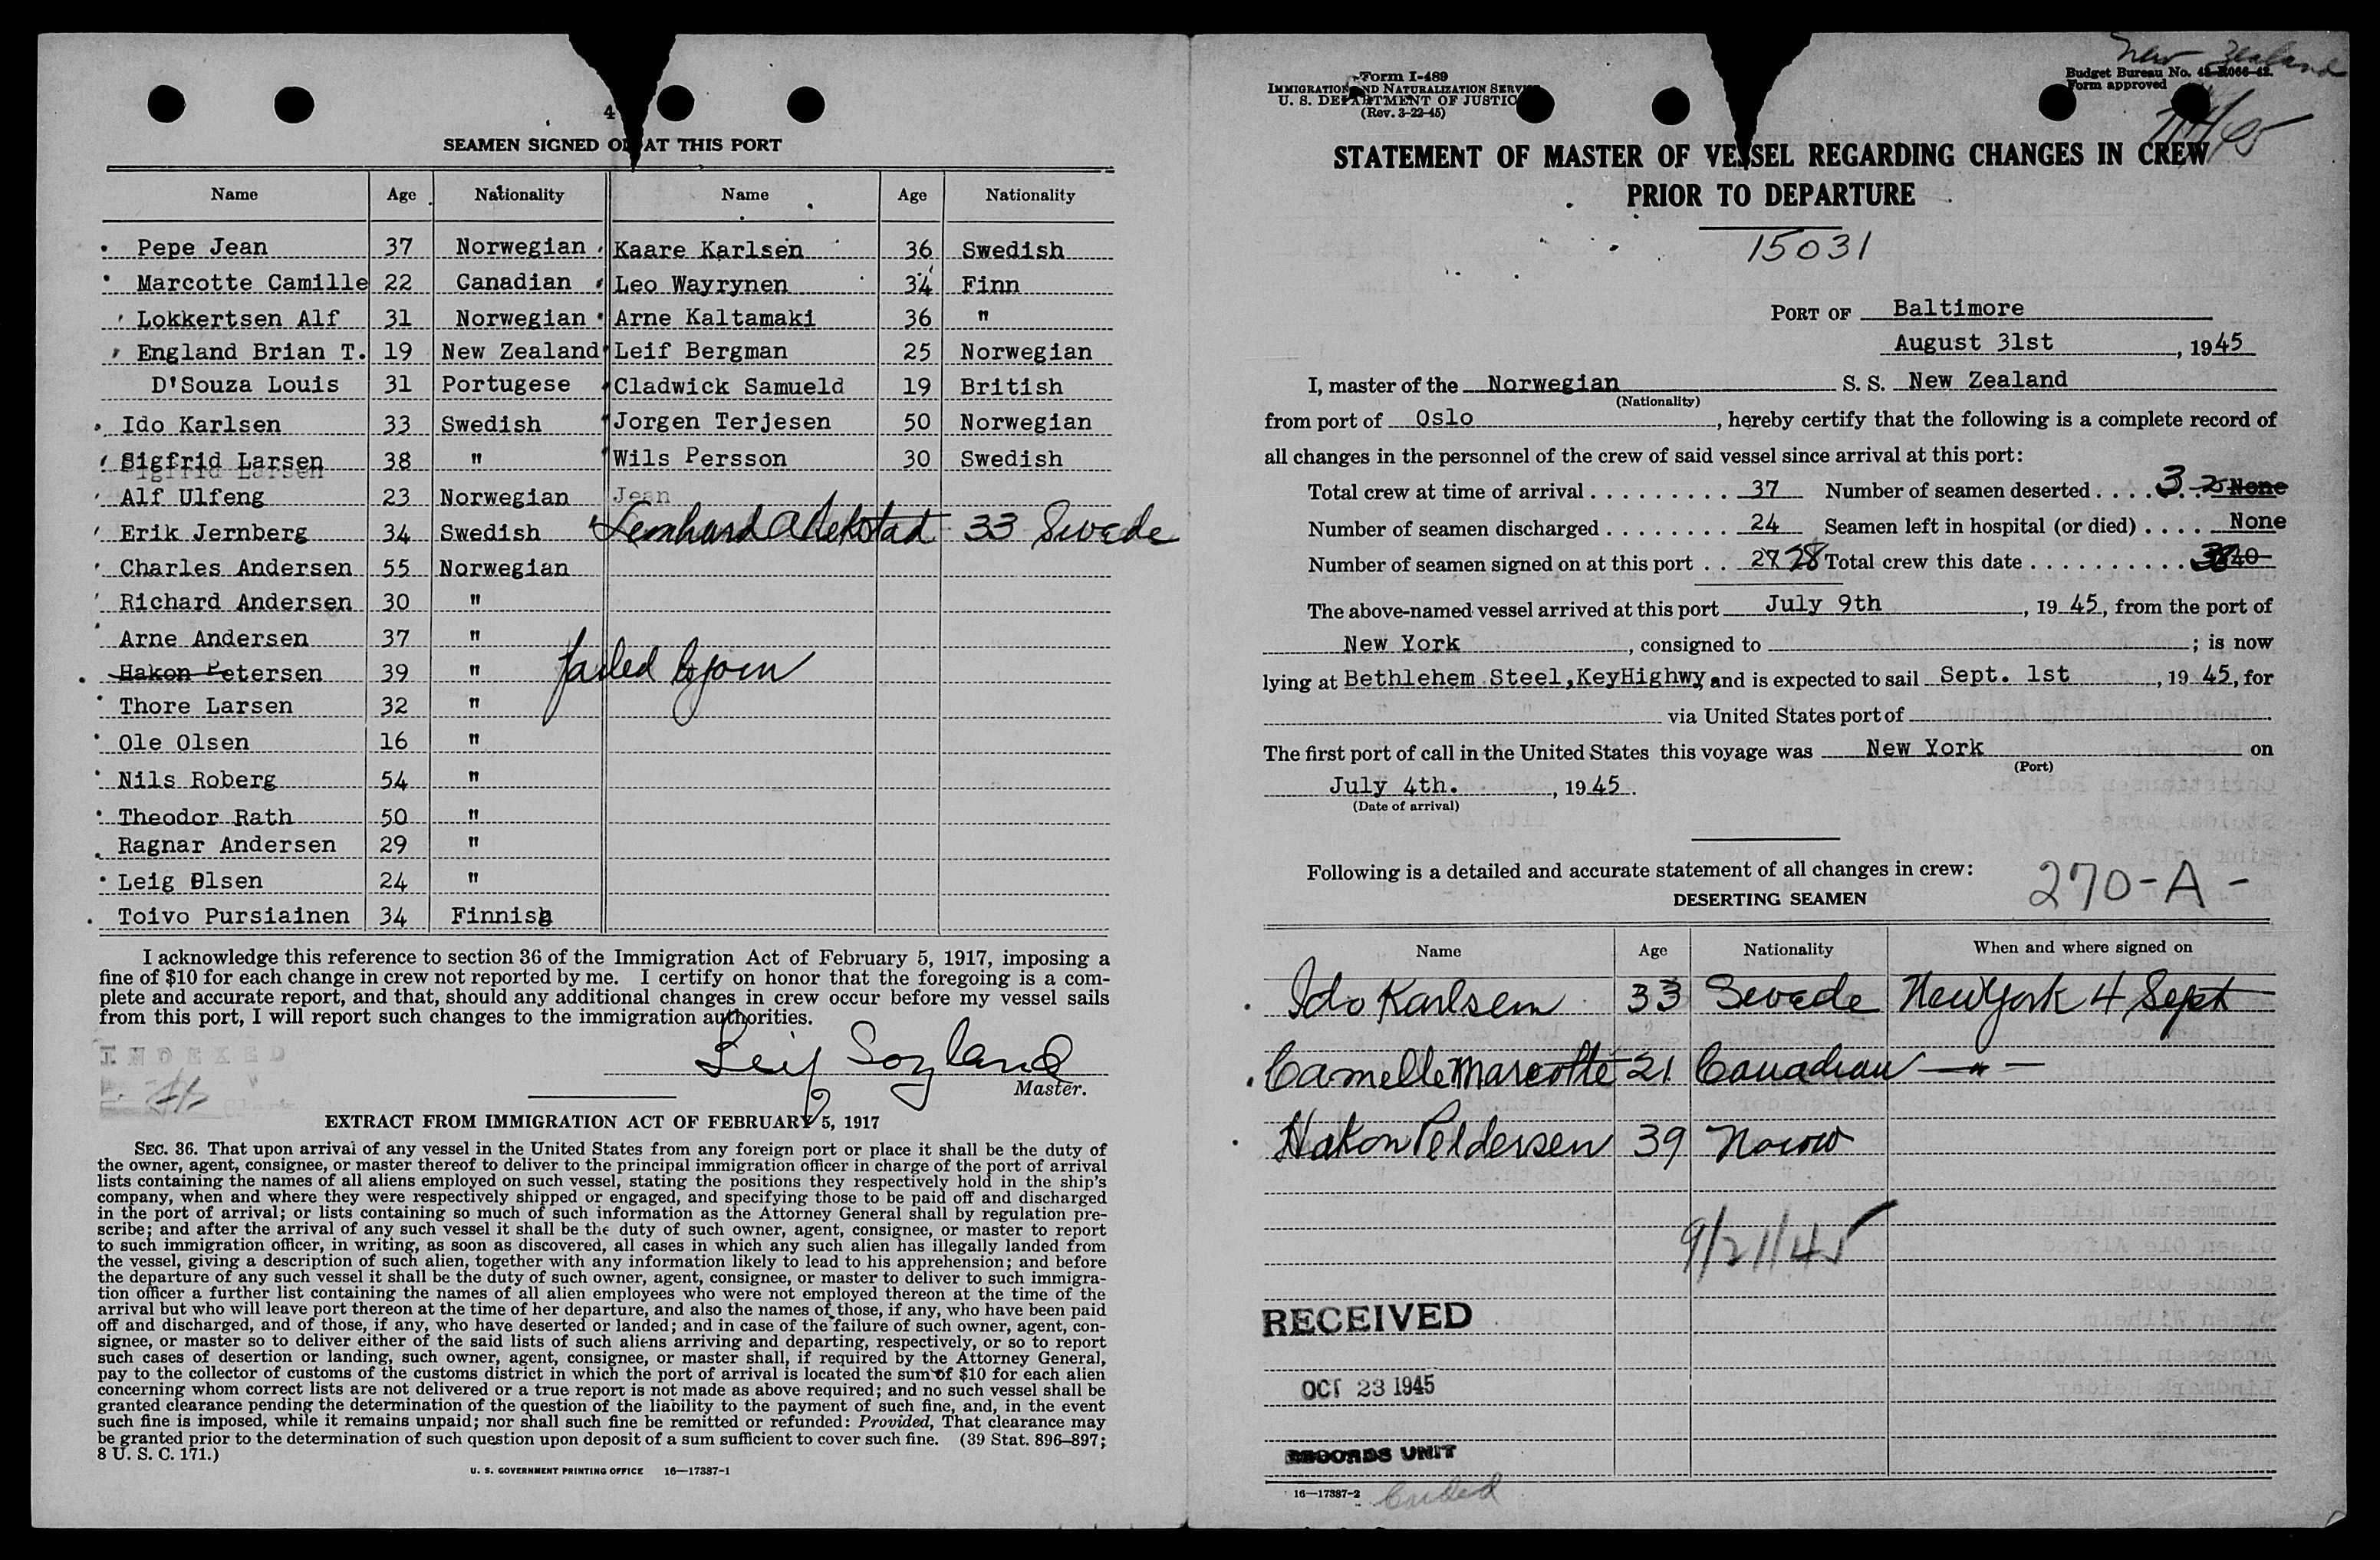 4
SEAMEN SIGNED ON AT THIS PORT
Name Age Nationality Name Age Nationality
Pepe Jean 37 Norwegian Kaare Karlsen 36 Swedish
Marcotte Camille 22 Canadian Leo Wayrynen 34 Finn
Lokkertsen Alf 31 Norwegian Arne Kaltamaki 36 "
England Brian T. 19 New Zealand Leif Bergman 25 Norwegian
D'Souza Louis 31 Portugese Cladwick Samueld 19 British
Ido Karlsen 33 Swedish Jorgen Terjesen 50 Norwegian
Sigfrid Larsen 38 " Wils Persson 30 Swedish
Alf Ulfeng 23 Norwegian Jean
Erik Jernberg 34 Swedish 33 Swede
Charles Andersen 55 Norwegian
Richard Andersen 30 "
Arne Andersen 37 "
Hakon Petersen 39 " failed to join
Thore Larsen 32 "
Ole Olsen 16 "
Nils Roberg 54 "
Theodor Rath 50 "
Ragnar Andersen 29 "
Leig Olsen 24 "
Toivo Pursiainen 34 Finnish
I acknowledge this reference to section 36 of the Immigration Act of February 5, 1917, imposing a
fine of $10 for each change in crew not reported by me. I certify on honor that the foregoing is a com-
plete and accurate report, and that, should any additional changes in crew occur before my vessel sails
from this port, I will report such changes to the immigration authorities.
Leif Soyland
Master.
EXTRACT FROM IMMIGRATION ACT OF FEBRUARY 5, 1917
SEC. 36. That upon arrival of any vessel in the United States from any foreign port or place it shall be the duty of
the owner, agent, consignee, or master thereof to deliver to the principal immigration officer in charge of the port of arrival
lists containing the names of all aliens employed on such vessel, stating the positions they respectively hold in the ship's
company, when and where they were respectively shipped or engaged, and specifying those to be paid off and discharged
in the port of arrival; or lists containing so much of such information as the Attorney General shall by regulation pre-
scribe; and after the arrival of any such vessel it shall be the duty of such owner, agent, consignee, or master to report
to such immigration officer, in writing, as soon as discovered, all cases in which any such alien has illegally landed from
the vessel, giving a description of such alien, together with any information likely to lead to his apprehension; and before
the departure of any such vessel it shall be the duty of such owner, agent, consignee, or master to deliver to such immigra-
tion officer a further list containing the names of all alien employees who were not employed thereon at the time of the
arrival but who will leave port thereon at the time of her departure, and also the names of those, if any, who have been paid
off and discharged, and of those, if any, who have deserted or landed; and in case of the failure of such owner, agent, con-
signee, or master so to deliver either of the said lists of such aliens arriving and departing, respectively, or so to report
such cases of desertion or landing, such owner, agent, consignee, or master shall, if required by the Attorney General,
pay to the collector of customs of the customs district in which the port of arrival is located the sum of $10 for each alien
concerning whom correct lists are not delivered or a true report is not made as above required; and no such vessel shall be
granted clearance pending the determination of the question of the liability to the payment of such fine, and, in the event
such fine is imposed, while it remains unpaid; nor shall such fine be remitted or refunded: Provided, That clearance may
be granted prior to the determination of such question upon deposit of a sum sufficient to cover such fine. (39 Stat. 896–897;
8 U. S. C. 171.)
U. S. GOVERNMENT PRINTING OFFICE 16—17387-1
New Zealand
Form I-489
IMMIGRATION AND NATURALIZATION SERVICE
U. S. DEPARTMENT OF JUSTICE
(Rev. 3-22-45)
Budget Bureau No. 43-R066-42.
Form approved
STATEMENT OF MASTER OF VESSEL REGARDING CHANGES IN CREW
PRIOR TO DEPARTURE
15031
PORT OF Baltimore
August 31st, 1945
I, master of the Norwegian S. S. New Zealand
(Nationality)
from port of Oslo, hereby certify that the following is a complete record of
all changes in the personnel of the crew of said vessel since arrival at this port:
Total crew at time of arrival . . . . . . . . . 37 Number of seamen deserted . . . . 3 2 None
Number of seamen discharged . . . . . . . . 24 Seamen left in hospital (or died) . . . . None
Number of seamen signed on at this port . . 27 28 Total crew this date . . . . . . . . . . 40
The above-named vessel arrived at this port July 9th, 1945, from the port of
New York, consigned to ; is now
lying at Bethlehem Steel,KeyHighwy and is expected to sail Sept. 1st, 1945, for
via United States port of
The first port of call in the United States this voyage was New York on
(Port)
July 4th., 1945.
(Date of arrival)
Following is a detailed and accurate statement of all changes in crew:
270-A-
DESERTING SEAMEN
Name Age Nationality When and where signed on
Ido Karlsem 33 Swede New York 4 Sept
Camelle Marcotte 21 Canadian — " —
Hakon Peldersen 39 Norw
9/21/45
RECEIVED
OCT 23 1945
RECORDS UNIT
16—17387-2
Carded